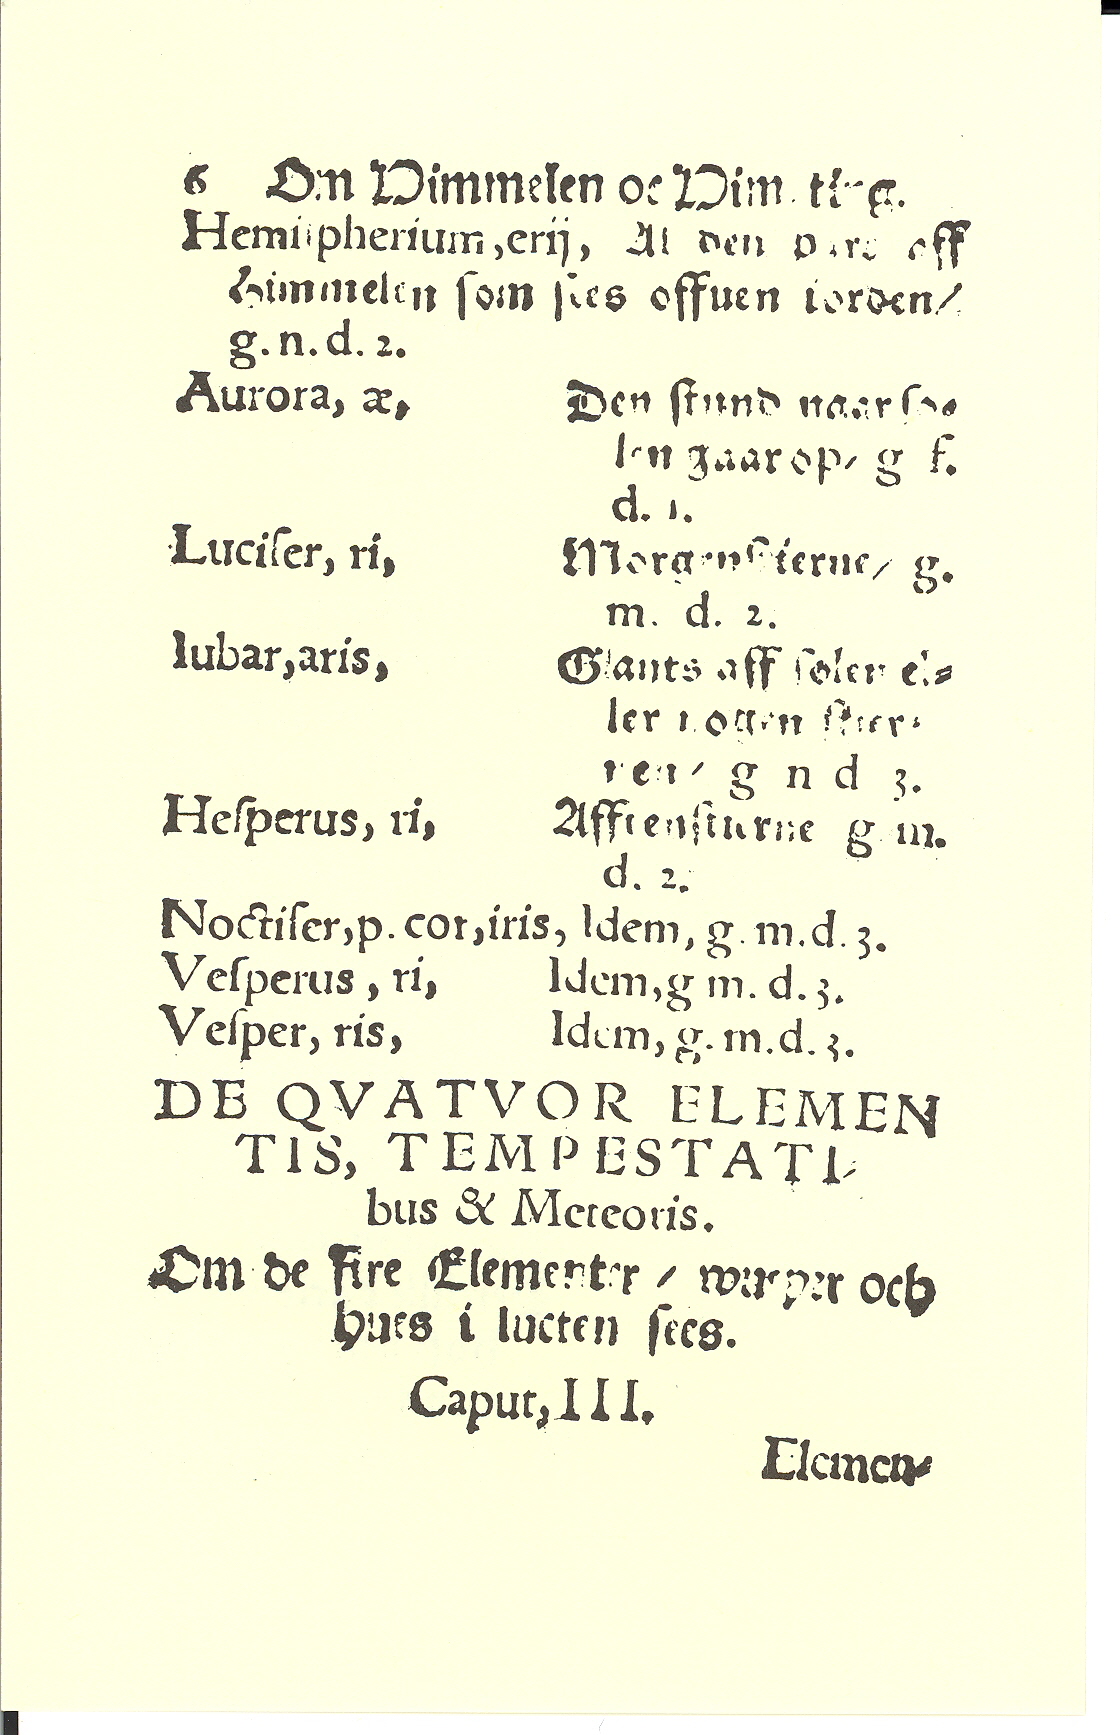 6 Om Himmelen oc Him. ting.
Hemiſpherium, erij, Al den part off
himmelen ſom ſees offuen iorden/
g. n. d. 2.
Aurora, æ, Den ſtund naar ſo-
len gaar op/ g f.
d. 1.
Lucifer, ri, Morgenſtierne/ g.
m. d. 2.
Iubar, aris, Glants aff ſolen el-
ler nogen ſtier-
nen/ g n d 3.
Heſperus, ri, g m.
d. 2.
Noctifer, p. cor, iris, Idem, g. m. d. 3.
Veſperus, ri, Idem, g m. d. 3.
Veſper, ris, Idem, g. m. d. 3.
DE QVATVOR ELEMEN
TIS, TEMPESTATI-
bus & Meteoris.
Om de fire Elementer / och
hues i lucten ſees.
Caput, III.
Elemen-